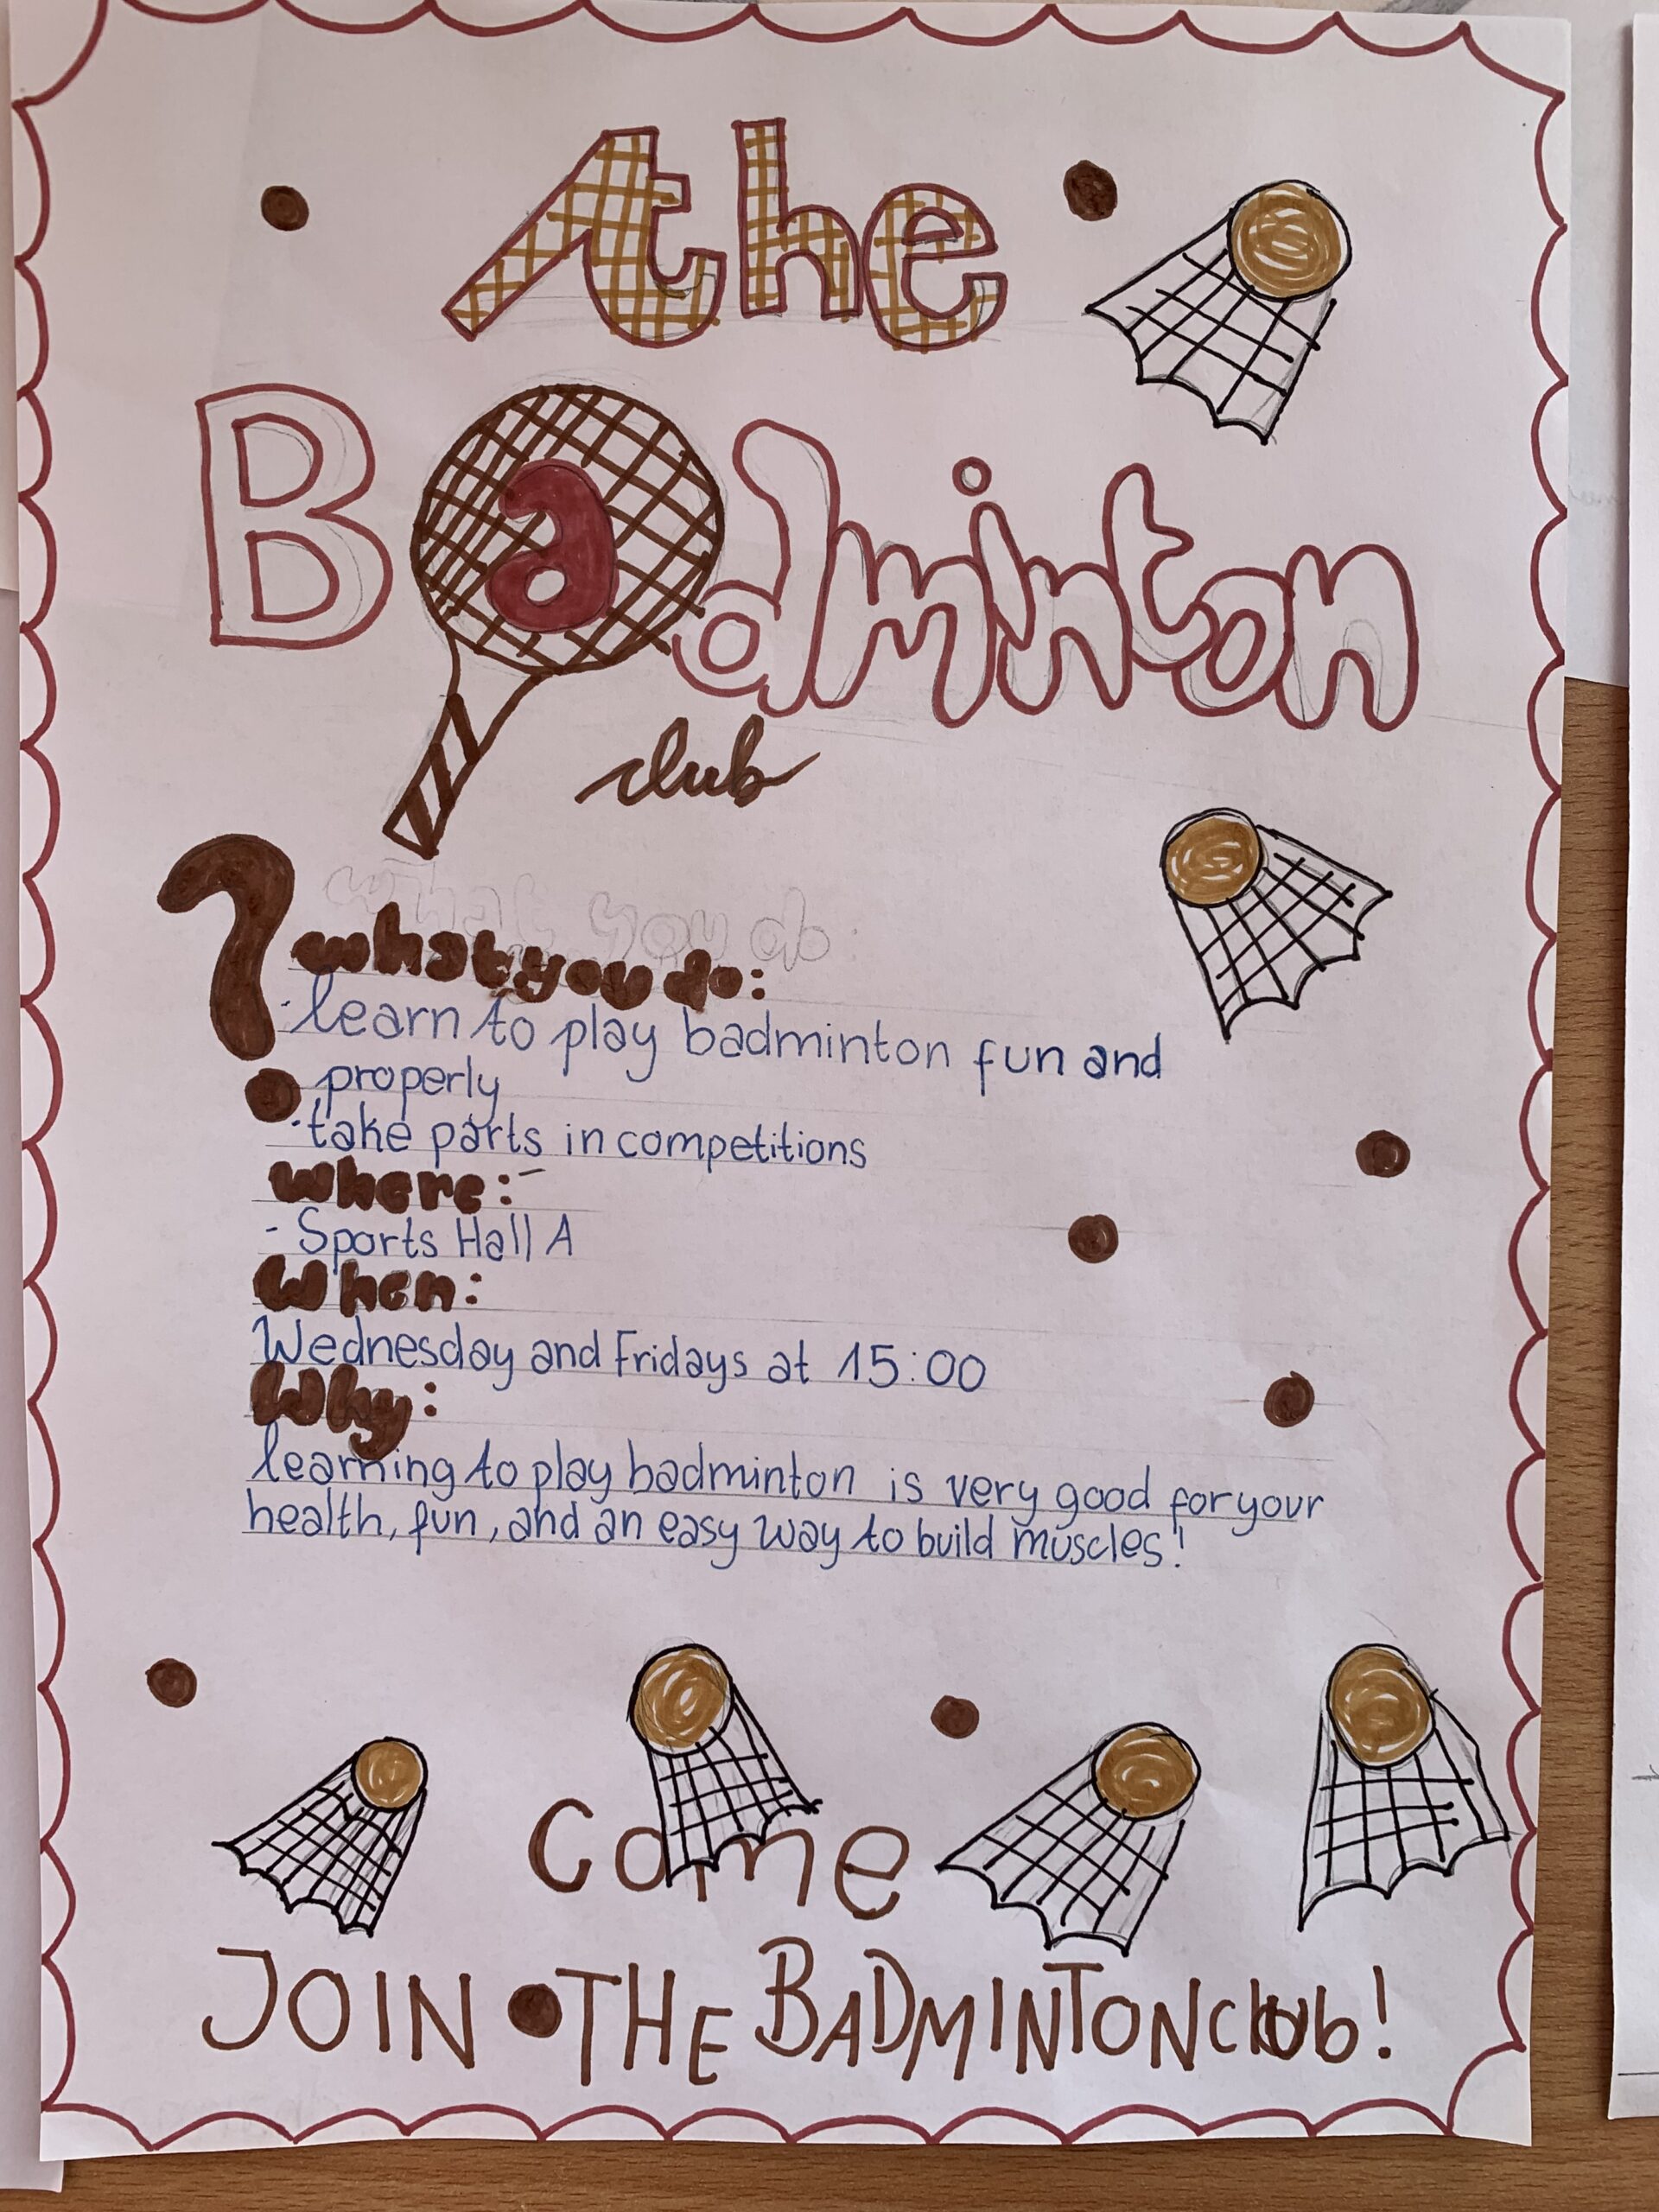 the
Badminton
club
what you do
? what you do:
·learn to play badminton fun and
properly
·take parts in competitions
where:
- Sports Hall A
When:
Wednesday and Fridays at 15:00
Why:
learning to play badminton is very good for your
health, fun, and an easy way to build muscles!
come
JOIN THE BADMINTON club!